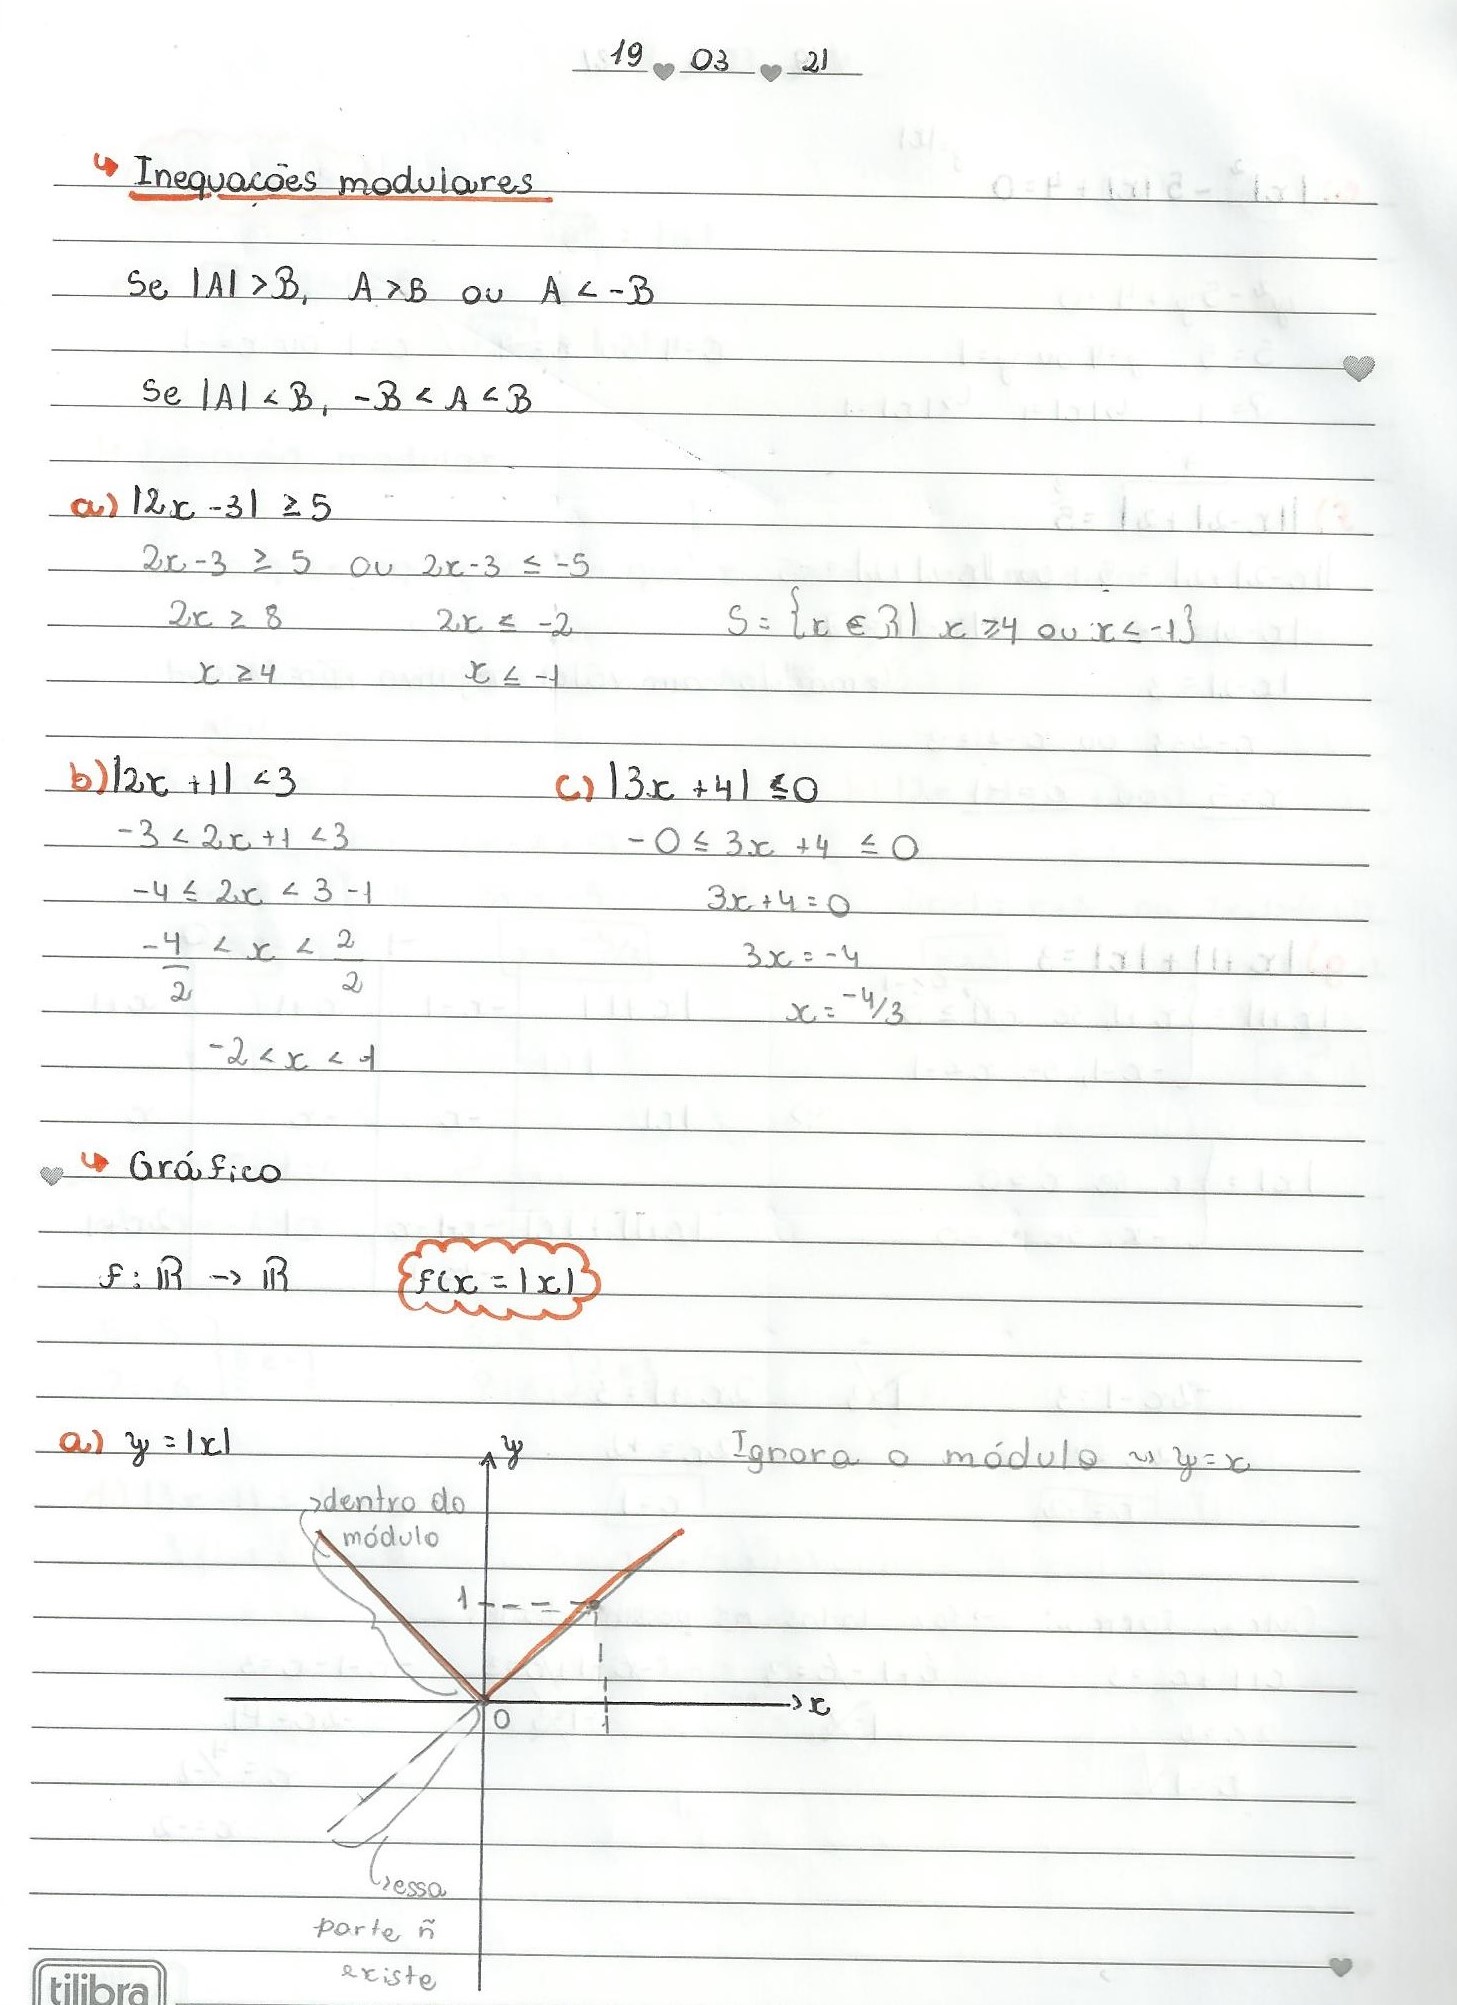 19 03 21
↳ Inequacões modulares
Se |A| > B, A > B ou A < -B
Se |A| < B, -B < A < B
a) |2x - 3| ≥ 5
2x - 3 ≥ 5 ou 2x - 3 ≤ -5
2x ≥ 8 2x ≤ -2 S = {x ∈ R | x ≥ 4 ou x ≤ -1}
x ≥ 4 x ≤ -1
b) |2x + 1| < 3 c) |3x + 4| ≤ 0
-3 < 2x + 1 < 3 -0 ≤ 3x + 4 ≤ 0
-4 ≤ 2x < 3 - 1 3x + 4 = 0
-4/2 < x < 2/2 3x = -4
x = -4/3
-2 < x < 1
↳ Gráfico
f: ℝ → ℝ f(x = |x|
a) y = |x| y Ignora o módulo ↝ y = x
dentro do
módulo
1
x
0 1
essa
parte ñ
existe
tilibra